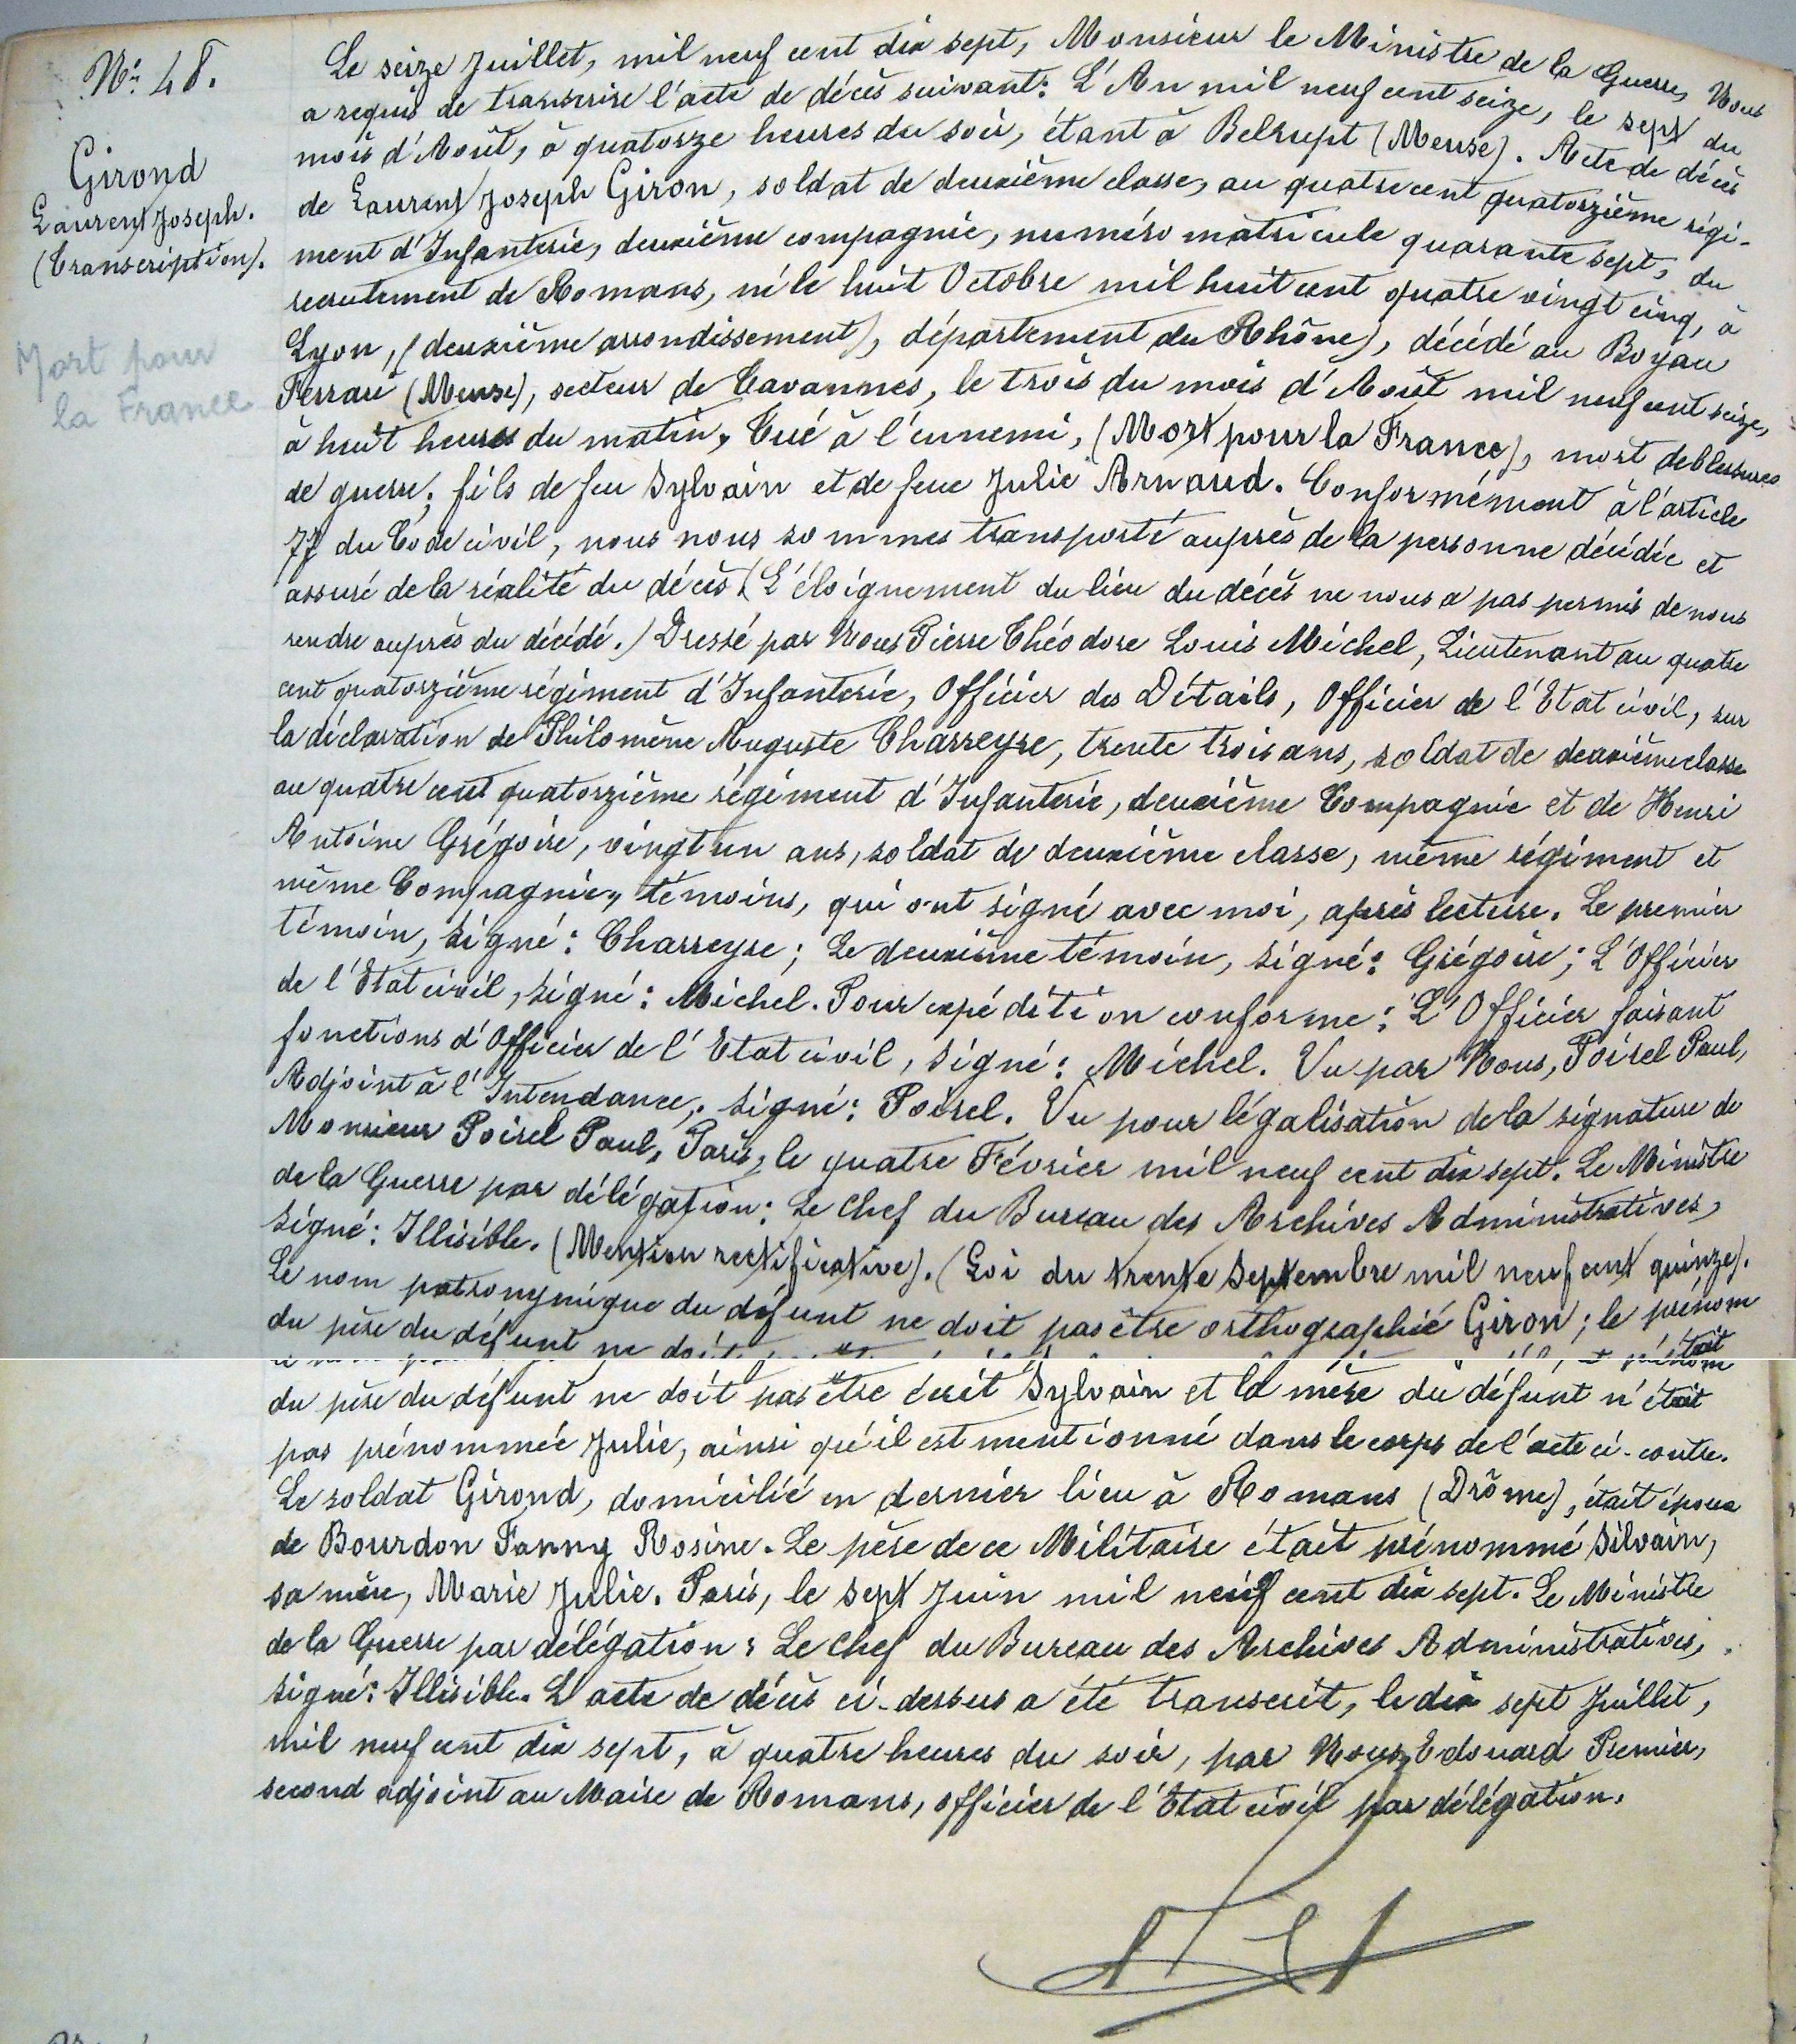 N° 48.
Girond
Laurent Joseph.
(Transcription).
Mort pour
la France
Le seize Juillet, mil neuf cent dix sept, Monsieur le Ministre de la Guerre, Nous
a requis de transcrire l'acte de décès suivant: L'An mil neuf cent seize, le sept du
mois d'Août, à quatorze heures du soir, étant à Belrupt (Meuse). Acte de décès
de Laurent Joseph Giron, soldat de deuxième classe, au quatre cent quatorzième régi-
ment d'Infanterie, deuxième compagnie, numéro matricule quarante sept, du
recrutement de Romans, né le huit Octobre mil huit cent quatre vingt cinq, à
Lyon, (deuxième arrondissement), département du Rhône), décédé au Boyau
Ferrari (Meuse), secteur de Tavannes, le trois du mois d'Août mil neuf cent seize,
à huit heures du matin, Tué à l'ennemi, (Mort pour la France), mort de blessures
de guerre; fils de feu Sylvain et de feue Julie Arnaud. Conformément à l'article
77 du Code civil, nous nous sommes transporté auprès de la personne décédée et
assuré de la réalité du décès (L'éloignement du lieu du décès ne nous a pas permis de nous
rendre auprès du décédé.) Dressé par Nous Pierre Théodore Louis Michel, Lieutenant au quatre
cent quatorzième régiment d'Infanterie, Officier des Détails, Officier de l'Etat civil, sur
la déclaration de Philomène Auguste Charreyre, trente trois ans, soldat de deuxième classe
au quatre cent quatorzième régiment d'Infanterie, deuxième Compagnie et de Henri
Antoine Grégoire, vingt un ans, soldat de deuxième classe, même régiment et
même Compagnie, témoins, qui ont signé avec moi, après lecture. Le premier
témoin, signé: Charreyre; Le deuxième témoin, signé: Grégoire; L'Officier
de l'Etat civil, signé: Michel. Pour expédition conforme: L'Officier faisant
fonctions d'Officier de l'Etat civil, signé: Michel. Vu par Nous, Poirel Paul,
Adjoint à l'Intendance, signé: Poirel. Vu pour légalisation de la signature de
Monsieur Poirel Paul, Paris, le quatre Février mil neuf cent dix sept. Le Ministre
de la Guerre par délégation: Le Chef du Bureau des Archives Administratives,
signé: Illisible. (Mention rectificative). (Loi du trente Septembre mil neuf cent quinze).
Le nom patronymique du défunt ne doit pas être orthographié Giron; le prénom
du père du défunt ne doit
du père du défunt ne doit pas être écrit Sylvain et la mère du défunt n'était
pas prénommée Julie, ainsi qu'il est mentionné dans le corps de l'acte ci-contre.
Le soldat Girond, domicilié en dernier lieu à Romans (Drôme), était époux
de Bourdon Fanny Rosine. Le père de ce Militaire était prénommé Silvain,
sa mère, Marie Julie. Paris, le sept Juin mil neuf cent dix sept. Le Ministre
de la Guerre par délégation: Le Chef du Bureau des Archives Administratives,
signé: Illisible. L'acte de décès ci-dessus a été transcrit, le dix sept Juillet,
mil neuf cent dix sept, à quatre heures du soir, par Nous, Edouard Premier,
second adjoint au Maire de Romans, officier de l'Etat civil par délégation.